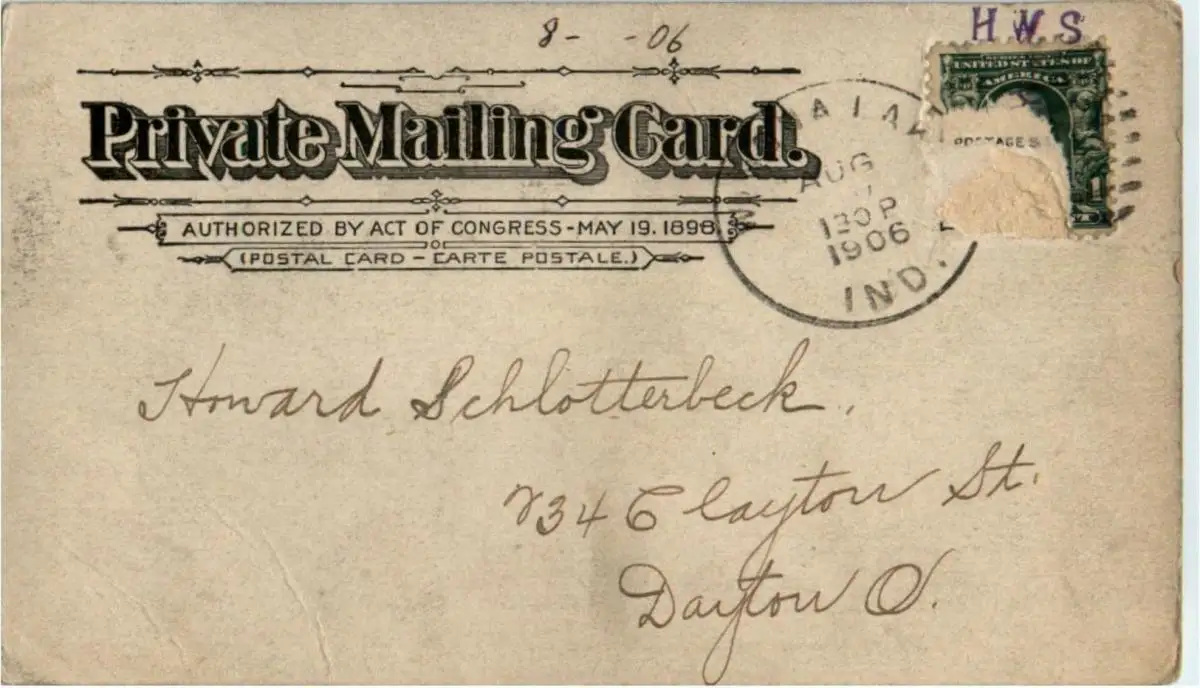 8- -06
HWS
UNITED STATES OF
AMERICA
POSTAGE
1
Private Mailing Card.
AUTHORIZED BY ACT OF CONGRESS-MAY 19. 1898.
(POSTAL CARD – CARTE POSTALE.)
AUG
130P
1906
IND.
Howard Schlotterbeck.
234 Clayton St.
Dayton O.